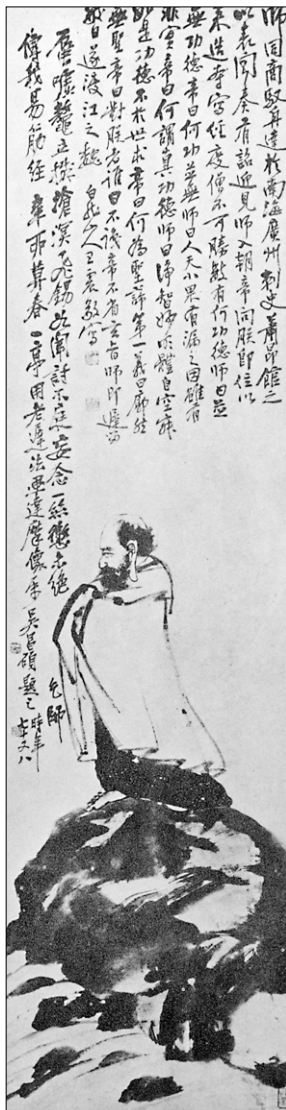 師同商舟達於南海廣州刺史蕭昂館之
以表聞奏有詔迎見師入朝帝問朕即位以
來造寺寫經度僧不可勝數有何功德師曰並
無功德帝曰何功並無師曰人天小果有漏之因雖有
非實帝曰何謂真功德師曰淨智妙明體自空寂
如是功德不於世求帝曰何為聖諦第一義曰廓然
無聖帝曰對朕者誰曰不識帝不省玄旨師即遲留
幾日遂渡江之魏 白龍山人王震敬寫
蜃噓鼇立撥滄溟飛錫如聞討不廷妄念一絲懸不絕
乞師
偉哉易筋經 辛酉暮春一亭用老蓮法畫達摩像 吳昌碩題之時年
七十又八